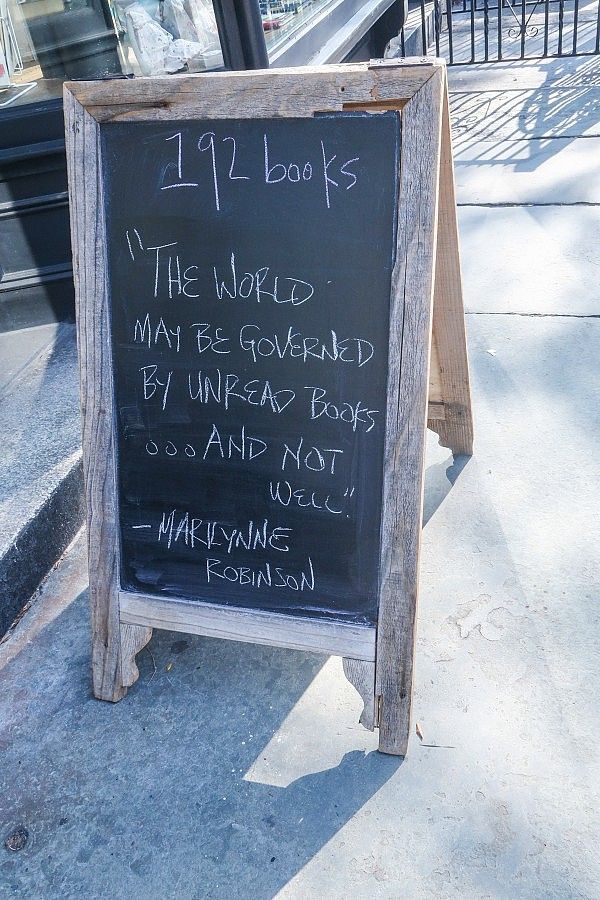 192 books
"THE WORLD
MAY BE GOVERNED
BY UNREAD BOOKS
...AND NOT
WELL".
- MARILYNNE
ROBINSON